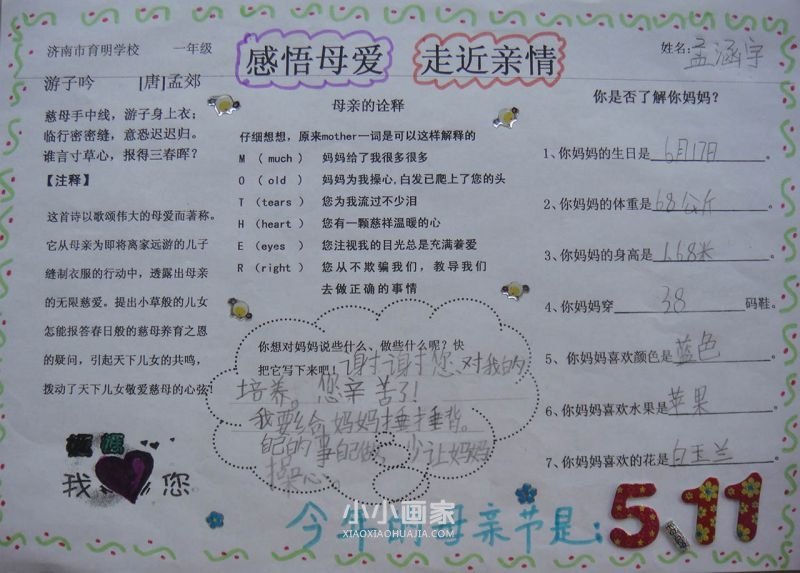 济南市育明学校 一年级
感悟母爱 走近亲情
姓名:孟涵宇
游子吟 [唐]孟郊
慈母手中线，游子身上衣；
临行密密缝，意恐迟迟归。
谁言寸草心，报得三春晖？
【注释】
这首诗以歌颂伟大的母爱而著称。
它从母亲为即将离家远游的儿子
缝制衣服的行动中，透露出母亲
的无限慈爱。提出小草般的儿女
怎能报答春日般的慈母养育之恩
的疑问，引起天下儿女的共鸣，
拨动了天下儿女敬爱慈母的心弦!
妈妈
我 您
母亲的诠释
仔细想想，原来mother一词是可以这样解释的
M （ much ） 妈妈给了我很多很多
O （ old ） 妈妈为我操心,白发已爬上了您的头
T （tears ） 您为我流过不少泪
H （heart ） 您有一颗慈祥温暖的心
E （eyes ） 您注视我的目光总是充满着爱
R （right ） 您从不欺骗我们，教导我们
去做正确的事情
你想对妈妈说些什么、做些什么呢？快
把它写下来吧！谢谢您对我的
培养。您辛苦了!
我要给妈妈捶捶背。
自己的事自己做，少让妈妈
操心。
你是否了解你妈妈？
1、你妈妈的生日是6月17日。
2、你妈妈的体重是68公斤。
3、你妈妈的身高是1.68米。
4、你妈妈穿38码鞋。
5、你妈妈喜欢颜色是蓝色。
6、你妈妈喜欢水果是苹果。
7、你妈妈喜欢的花是白玉兰。
今年的母亲节是:5.11
小小画家
XIAOXIAOHUAJIA.COM